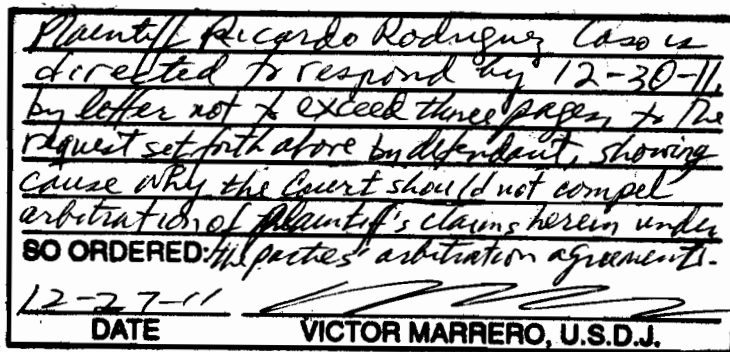 Plaintiff Ricardo Rodriguez Caso is
directed to respond by 12-30-11,
by letter not to exceed three pages, to the
request set forth above by defendant, showing
cause why the Court should not compel
arbitration of plaintiff's claims herein under
SO ORDERED: the parties' arbitration agreements.
12-27-11
DATE VICTOR MARRERO, U.S.D.J.